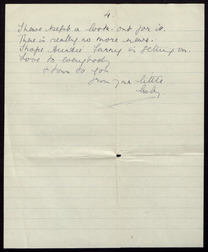 4.
I have kept a look-out for it.
There is really no more news.
I hope Auntie Fanny is getting on.
Love to everybody
& tons to you
from your little